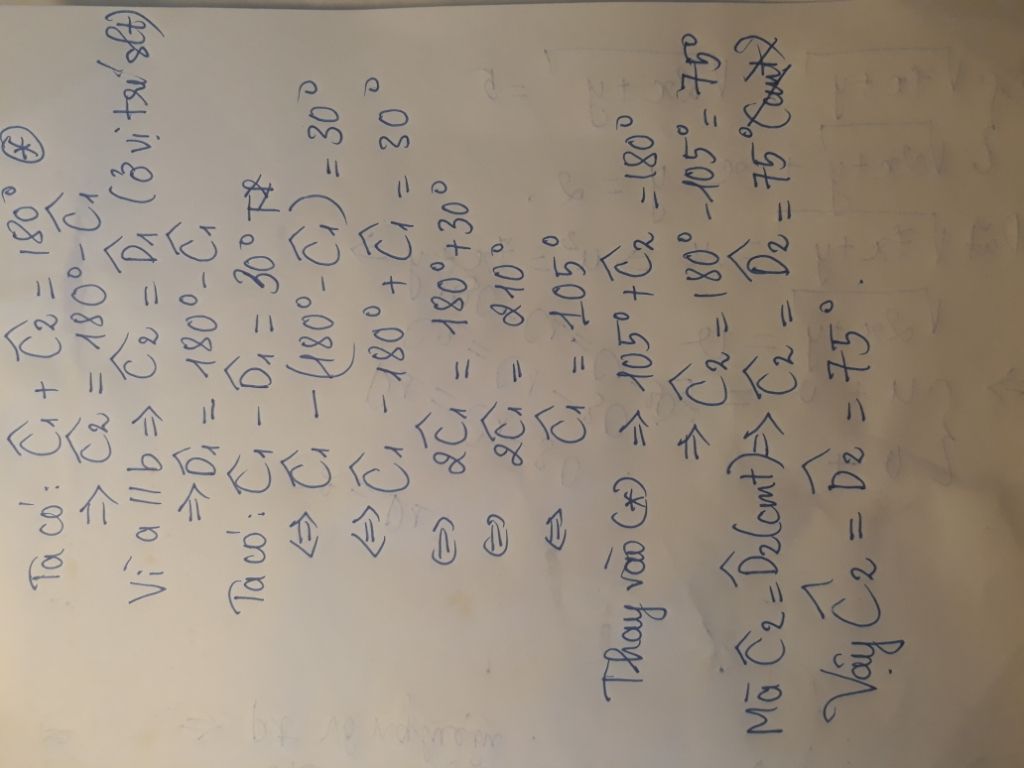 Ta có: Ĉ1 + Ĉ2 = 180° (*)
⇒ Ĉ2 = 180° - Ĉ1
Vì a // b ⇒ Ĉ2 = D̂1 (ở vị trí slt)
⇒ D̂1 = 180° - Ĉ1
Ta có: Ĉ1 - D̂1 = 30°
⇔ Ĉ1 - (180° - Ĉ1) = 30°
⇔ Ĉ1 - 180° + Ĉ1 = 30°
⇔ 2Ĉ1 = 180° + 30°
⇔ 2Ĉ1 = 210°
⇔ Ĉ1 = 105°
Thay vào (*) ⇒ 105° + Ĉ2 = 180°
⇒ Ĉ2 = 180° - 105° = 75°
Mà Ĉ2 = D̂2 (cmt) ⇒ Ĉ2 = D̂2 = 75°
Vậy Ĉ2 = D̂2 = 75°.